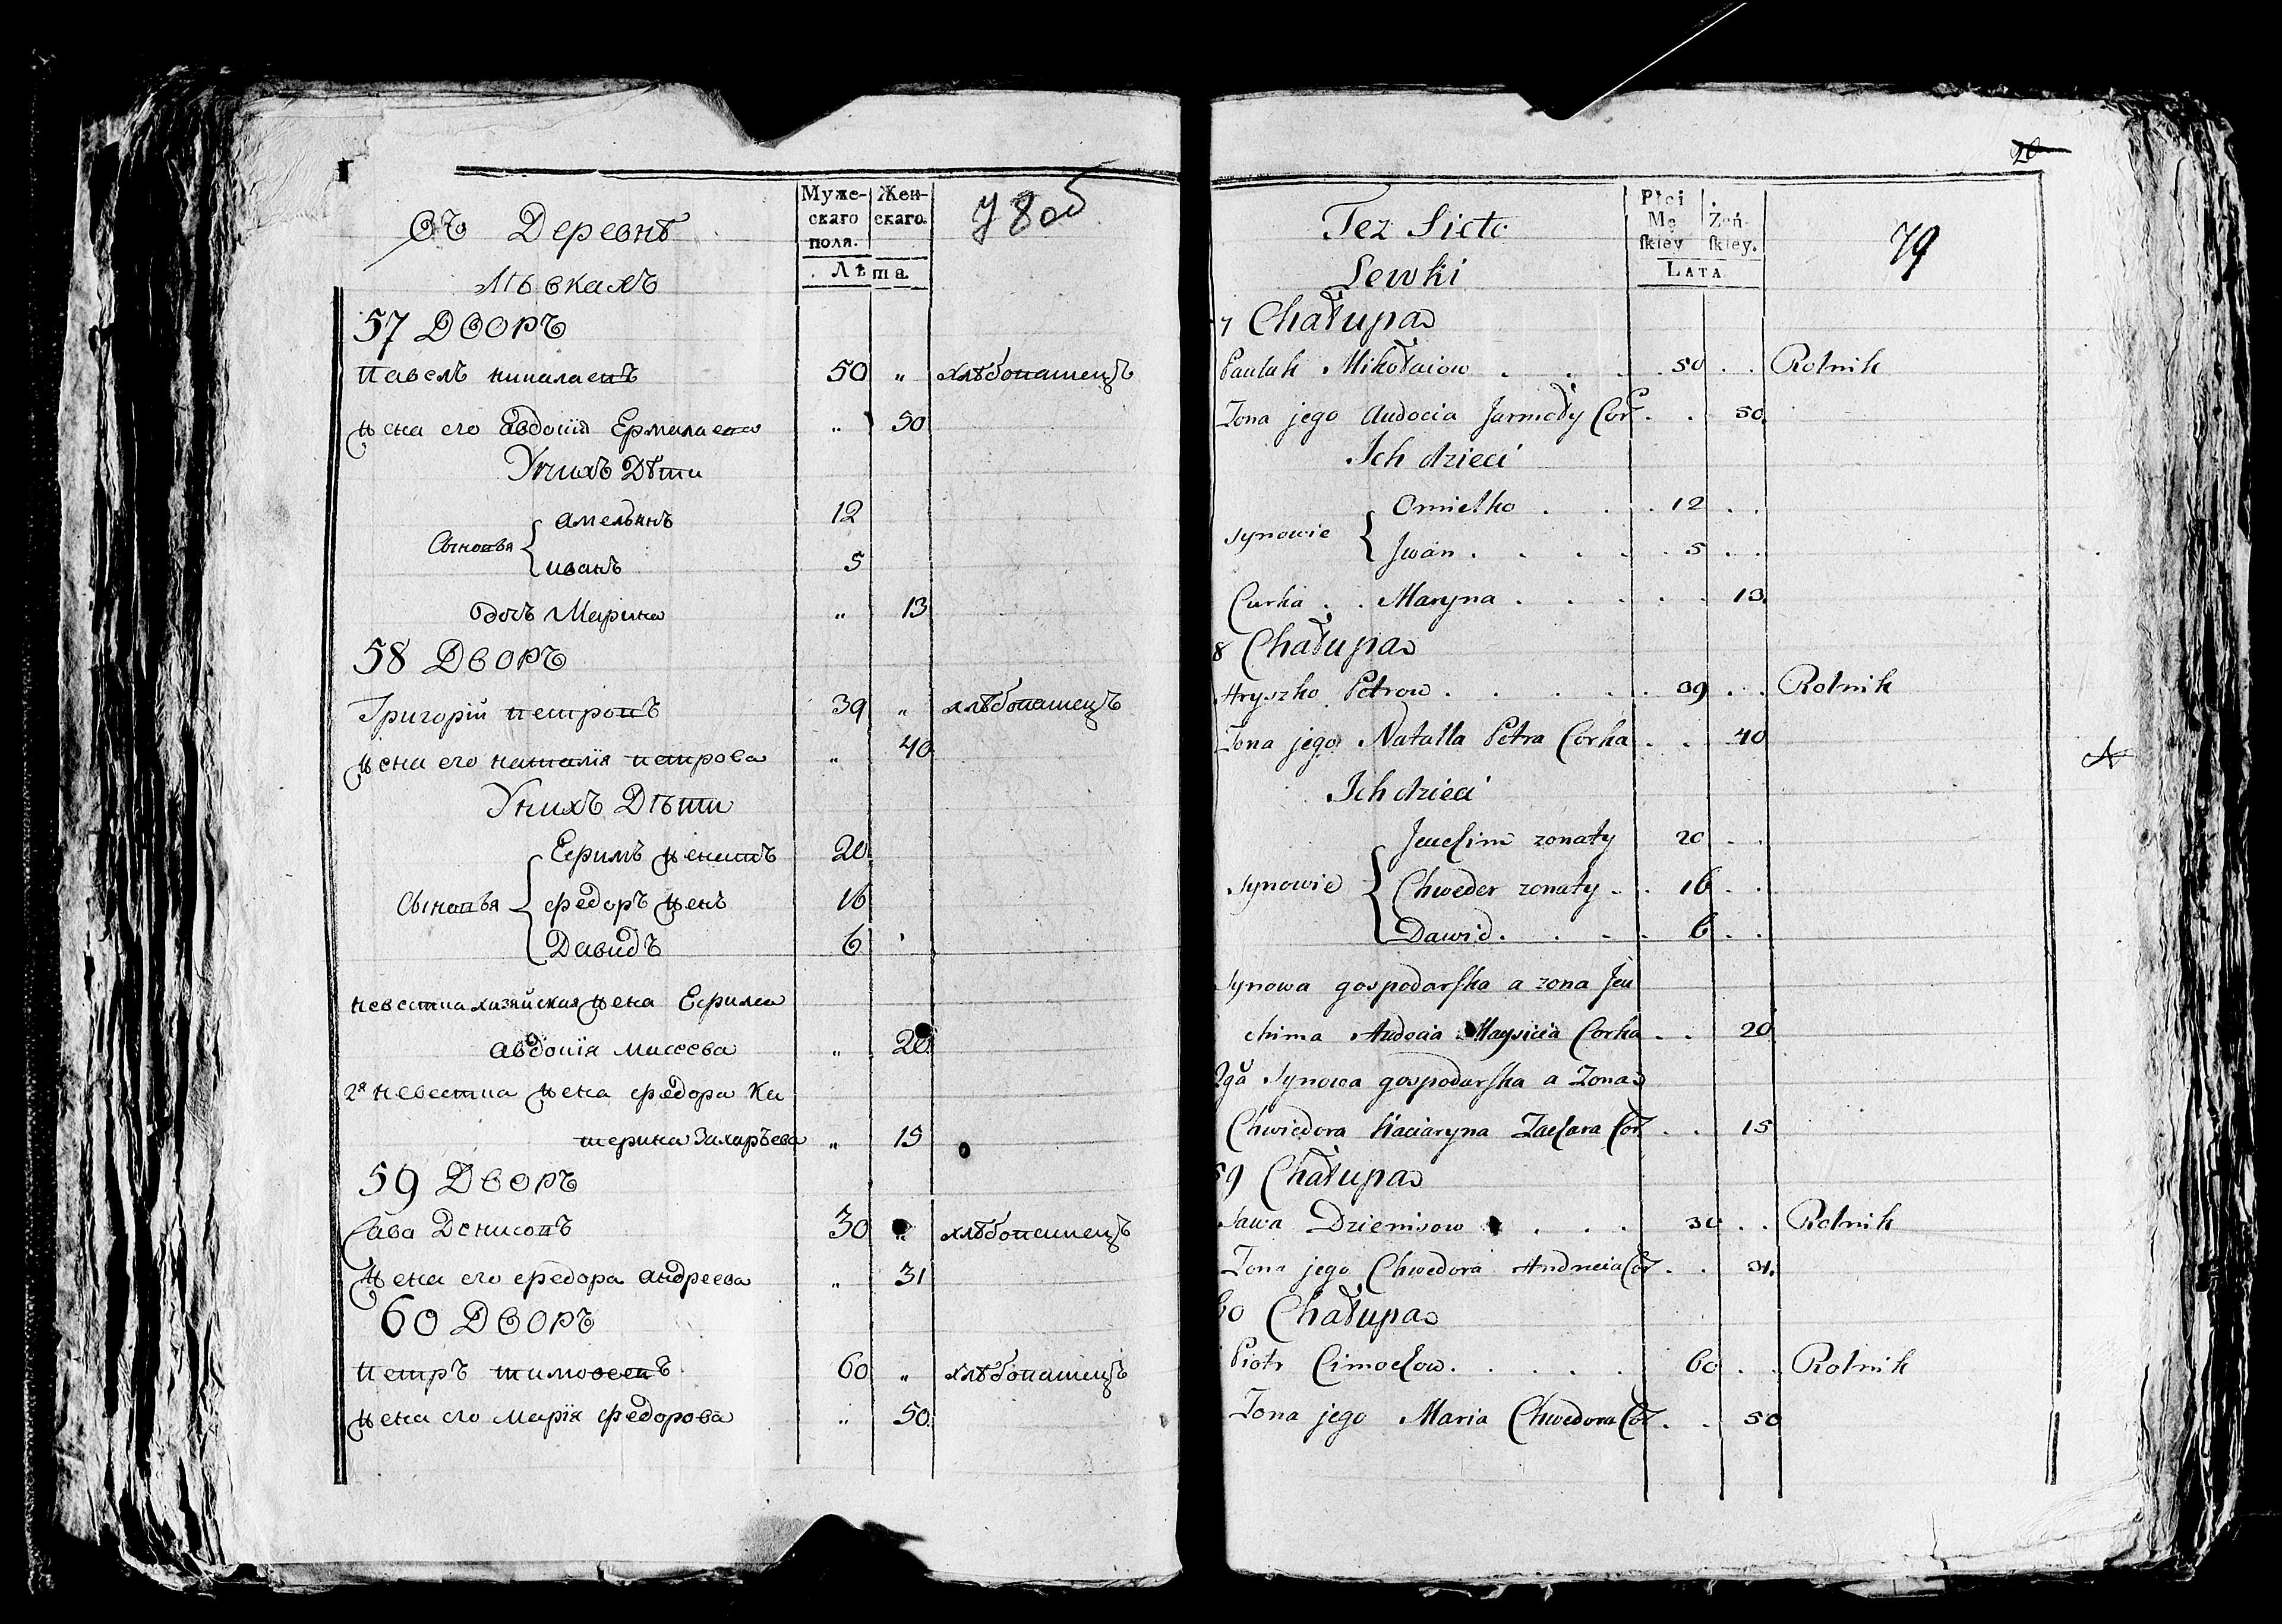 Муже-
скаго
поля.
Жен-
скаго.
Лѣта
78 об
Въ Деревнѣ
Лѣвкахъ
57 Дворъ
Павелъ николаевъ 50 „ хлѣбопашецъ
жена его авдотія Ермолаева „ 50
Унихъ Дѣти
Сыновья
амельянъ 12
иванъ 5
дочь Марина „ 13
58 Дворъ
Григорій петровъ 39 „ хлѣбопашецъ
жена его наталія петрова „ 40
Унихъ Дѣти
Сыновья
Ефимъ женатъ 20
федоръ жен. 16
Давидъ 6
невестка хазяйская жена Ефима
авдотія мисеева „ 20
2я невестка жена федора Ка
терина Захарьева „ 15
59 Дворъ
Сава Денисовъ 30 „ хлѣбопашецъ
жена его федора андреева „ 31
60 Дворъ
петръ тимофеевъ 60 „ хлѣбопашецъ
жена его марія федорова „ 50
Płci
Mę
ſkiey
Żeń-
ſkiey.
LATA
79
Tez Sioło
Lewki
7 Chałupa
Pauluk Mikołaiow . . . . 50 . . Rolnik
Zona jego Audocia Jarmoły Cor . . 50
Ich dzieci
Synowie
Omielko . . . 12 . .
Jwan . . . . . 5 . .
Curka . . Maryna . . . . . 13
8 Chałupa
Hryszko Petrow . . . . . 39 . . Rolnik
Zona jego Natalla Petra Corka . . 40
Ich dzieci
Synowie
Jeuchim zonaty 20 . .
Chweder zonaty . . 16 . .
Dawid . . . . 6 . .
Synowa gospodarſka a zona Jeu
chima Audocia Maysieia Corka . . 20
2ga Synowa gospodarſka a Zona
Chwiedora Kaciaryna Zachara Cor . . 15
59 Chałupa
Sawa Dzienisow . . . 30 . . Rolnik
Zona jego Chwedora Andreia Cor . . 31.
60 Chałupa
Piotr Cimochow . . . . . 60 . . Rolnik
Zona jego Maria Chwedora Cor . . 50